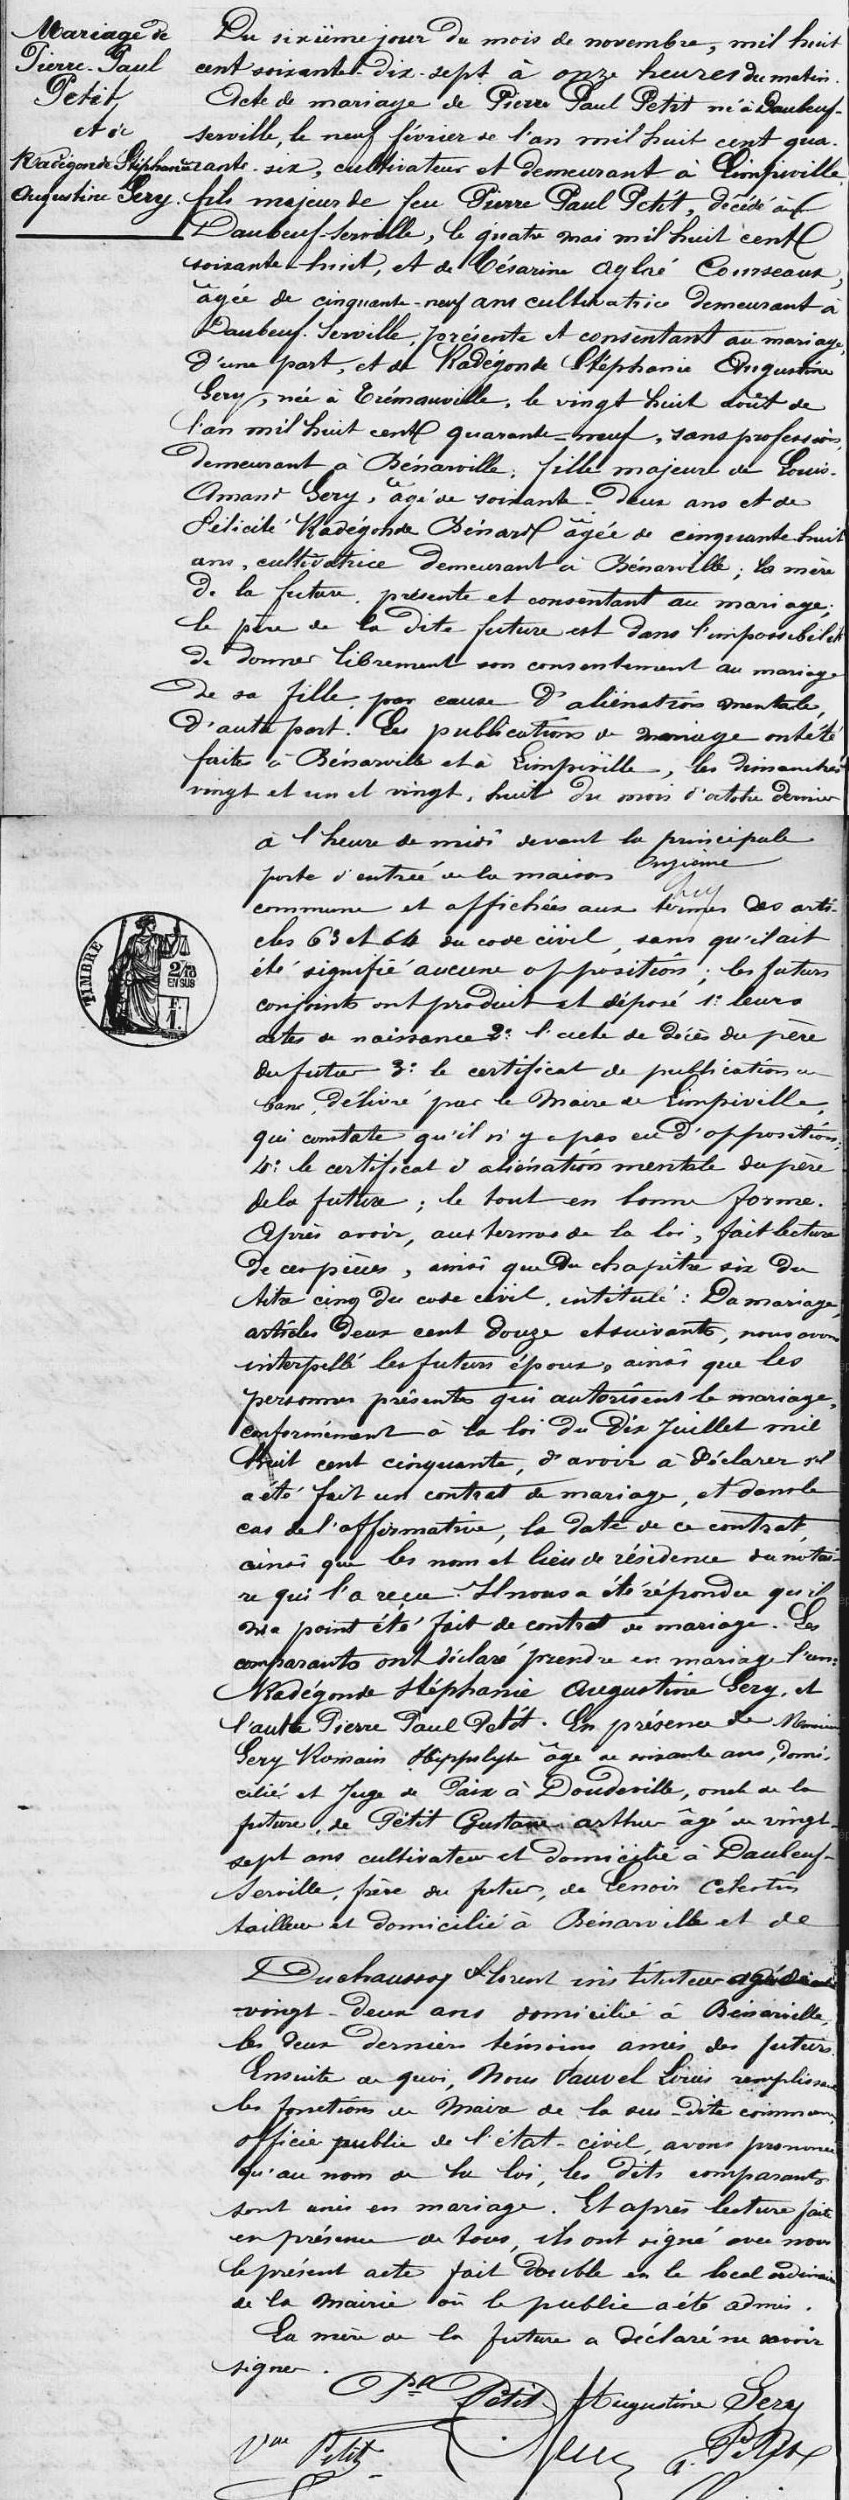 Mariage de
Pierre-Paul
Petit,
et de
Radégonde Stéphanie
Augustine Gery.
Du sixième jour du mois de novembre, mil huit
cent soixante-dix-sept à onze heures du matin.
Acte de mariage de Pierre Paul Petit né à Daubeuf-
serville, le neuf février de l'an mil huit cent qua-
rante-six, cultivateur et demeurant à Limpiville,
fils majeur de feu Pierre Paul Petit, décédé à
Daubeuf-Serville, le quatre mai mil huit cent
soixante-huit, et de Césarine Aglaé Courseaux,
âgée de cinquante-neuf ans cultivatrice demeurant à
Daubeuf-Serville, présente et consentant au mariage,
d'une part, et de Radégonde Stéphanie Augustine
Gery, née à Trémauville, le vingt huit août de
l'an mil huit cent quarante-neuf, sans profession,
demeurant à Bénarville, fille majeure de Louis-
Amand Gery, âgé de soixante-deux ans et de
Félicité Radégonde Bénard âgée de cinquante-huit
ans, cultivatrice demeurant à Bénarville; la mère
de la future présente et consentant au mariage;
le père de la dite future est dans l'impossibilité
de donner librement son consentement au mariage
de sa fille, pour cause d'aliénation mentale,
d'autre part. Les publications de mariage ont été
faites à Bénarville et à Limpiville, les dimanches
vingt et un et vingt-huit du mois d'octobre dernier
à l'heure de midi devant la principale
porte d'entrée de la maison Onzième
commune et affichées aux termes des arti-
cles 63 et 64 du code civil, sans qu'il ait
été signifié aucune opposition; les futurs
conjoints ont produit et déposé 1° leurs
actes de naissance 2° l'acte de décès du père
du futur 3° le certificat de publication de
bans, délivré par le Maire de Limpiville,
qui constate qu'il n'y a pas eu d'opposition;
4° le certificat d'aliénation mentale du père
de la future; le tout en bonne forme.
Après avoir, aux termes de la loi, fait lecture
de ces pièces, ainsi que du chapitre six du
titre cinq du code civil, intitulé: Du mariage,
articles deux cent douze et suivants, nous avons
interpellé les futurs époux, ainsi que les
personnes présentes qui autorisent le mariage,
conformément à la loi du dix Juillet mil
huit cent cinquante, d'avoir à déclarer s'il
a été fait un contrat de mariage, et dans le
cas de l'affirmative, la date de ce contrat,
ainsi que les nom et lieu de résidence du notai-
re qui l'a reçu. Il nous a été répondu qu'il
n'a point été fait de contrat de mariage. Les
comparants ont déclaré prendre en mariage l'un:
Radégonde Stéphanie Augustine Gery, et
l'autre Pierre Paul Petit. En présence de Monsieur
Gery Romain Hippolyte âgé de soixante ans, domi-
cilié et Juge de Paix à Doudeville, oncle de la
future, de Petit Gustave Arthur âgé de vingt-
sept ans cultivateur et domicilié à Daubeuf-
Serville, frère du futur, de Lenoir Célestin
tailleur et domicilié à Bénarville et de
TIMBRE
2/10
EN SUS
Duchaussoy Florent instituteur âgé de
vingt-deux ans domicilié à Bénarville,
les deux derniers témoins amis des futurs.
Ensuite de quoi, Nous Vauvel Louis remplissant
les fonctions de Maire de la sus-dite commune,
officier public de l'état-civil, avons prononcé
qu'au nom de la loi, les dits comparants
sont unis en mariage. Et après lecture faite
en présence de tous, ils ont signé avec nous
le présent acte fait double en le local ordinaire
de la Mairie où le public a été admis.
La mère de la future a déclaré ne savoir
signer.
Petit Augustine Gery
Vve Petit